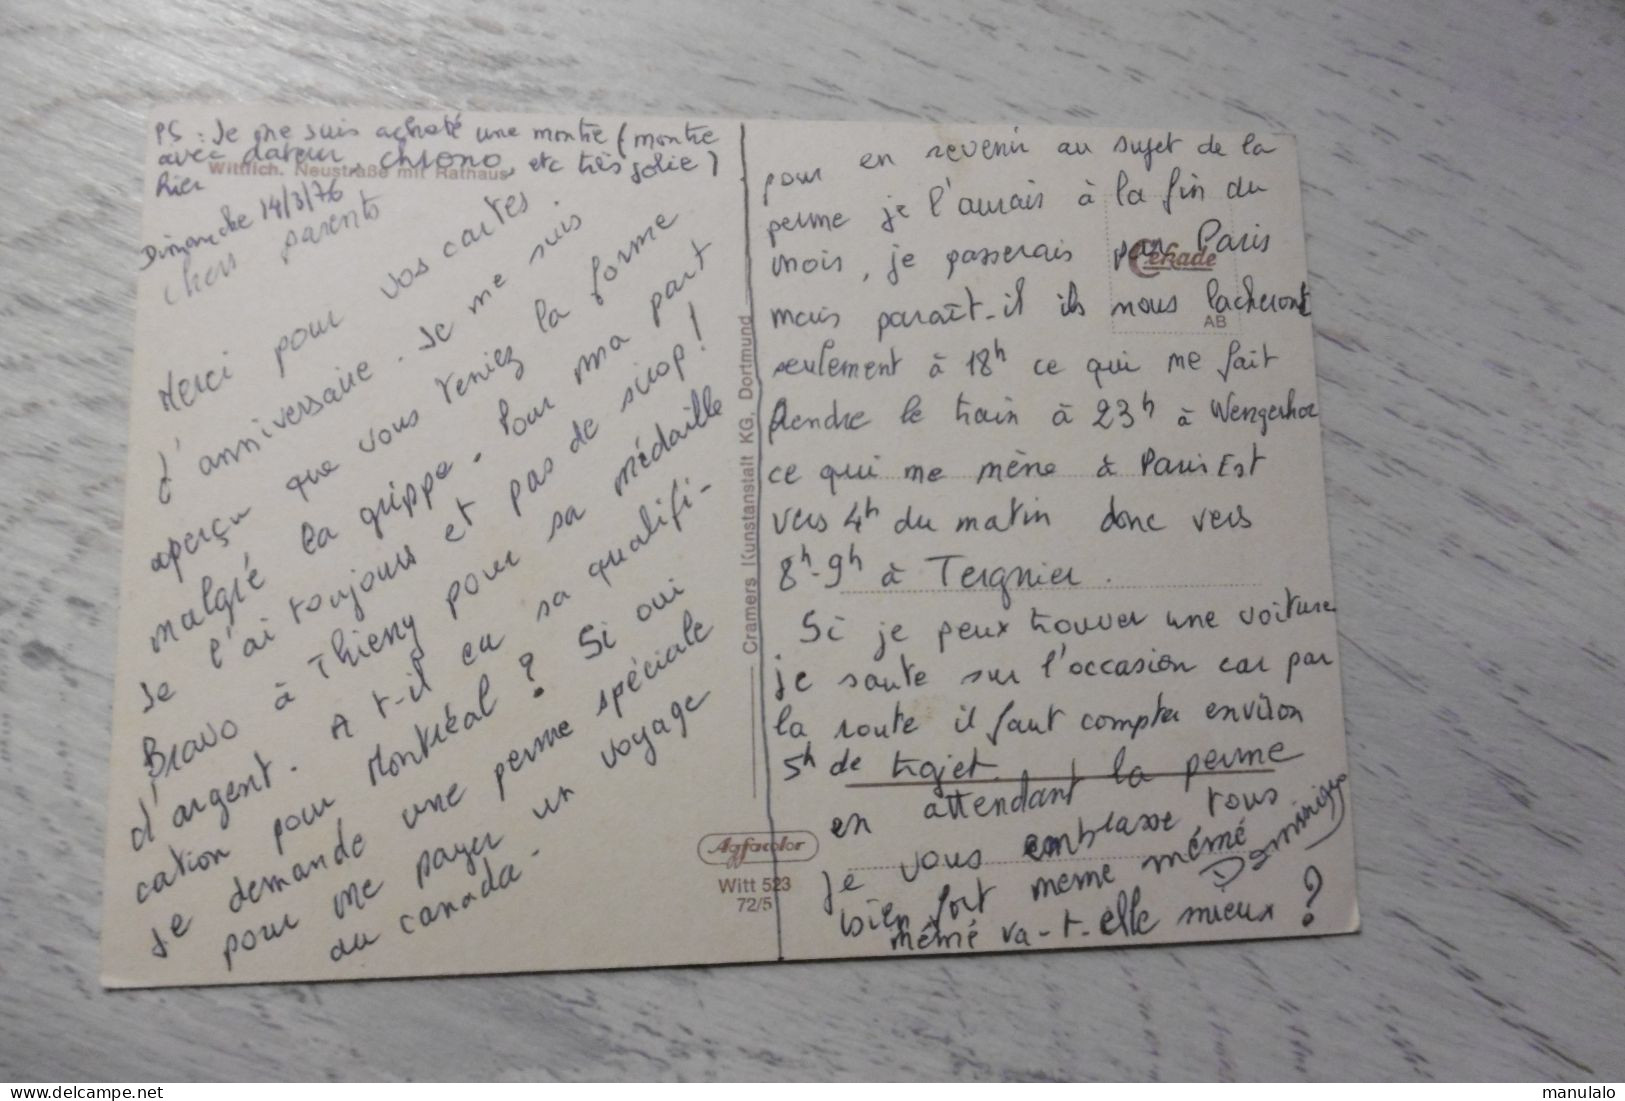 PS : Je me suis acheté une montre (montre
avec dateur, chrono, etc très jolie)
hier
Wittlich. Neustraße mit Rathaus
Dimanche 14/3/76
chers parents
Merci pour vos cartes
d'anniversaire. Je me suis
aperçu que vous teniez la forme
malgré la grippe. Pour ma part
Je l'ai toujours et pas de sirop !
Bravo à Thierry pour sa médaille
d'argent. A t-il eu sa qualifi-
cation pour Montréal ? Si oui
Je demande une perme spéciale
pour me payer un voyage
au canada.
Cramers Kunstanstalt KG, Dortmund
Agfacolor
Witt 523
72/5
pour en revenir au sujet de la
perme je l'aurais à la fin du
mois, je passerais par Paris
Cekade
mais paraît-il ils nous lacheront
AB
seulement à 18h ce qui me fait
prendre le train à 23h à
ce qui me mène à Paris Est
vers 4h du matin donc vers
8h-9h à Tergnier.
Si je peux trouver une voiture
je saute sur l'occasion car par
la route il faut compter environ
5h de trajet.
en attendant la perme
Je vous embrasse tous
bien fort meme mémé
Dominique
mémé va-t-elle mieux ?
manulalo
www.delcampe.net